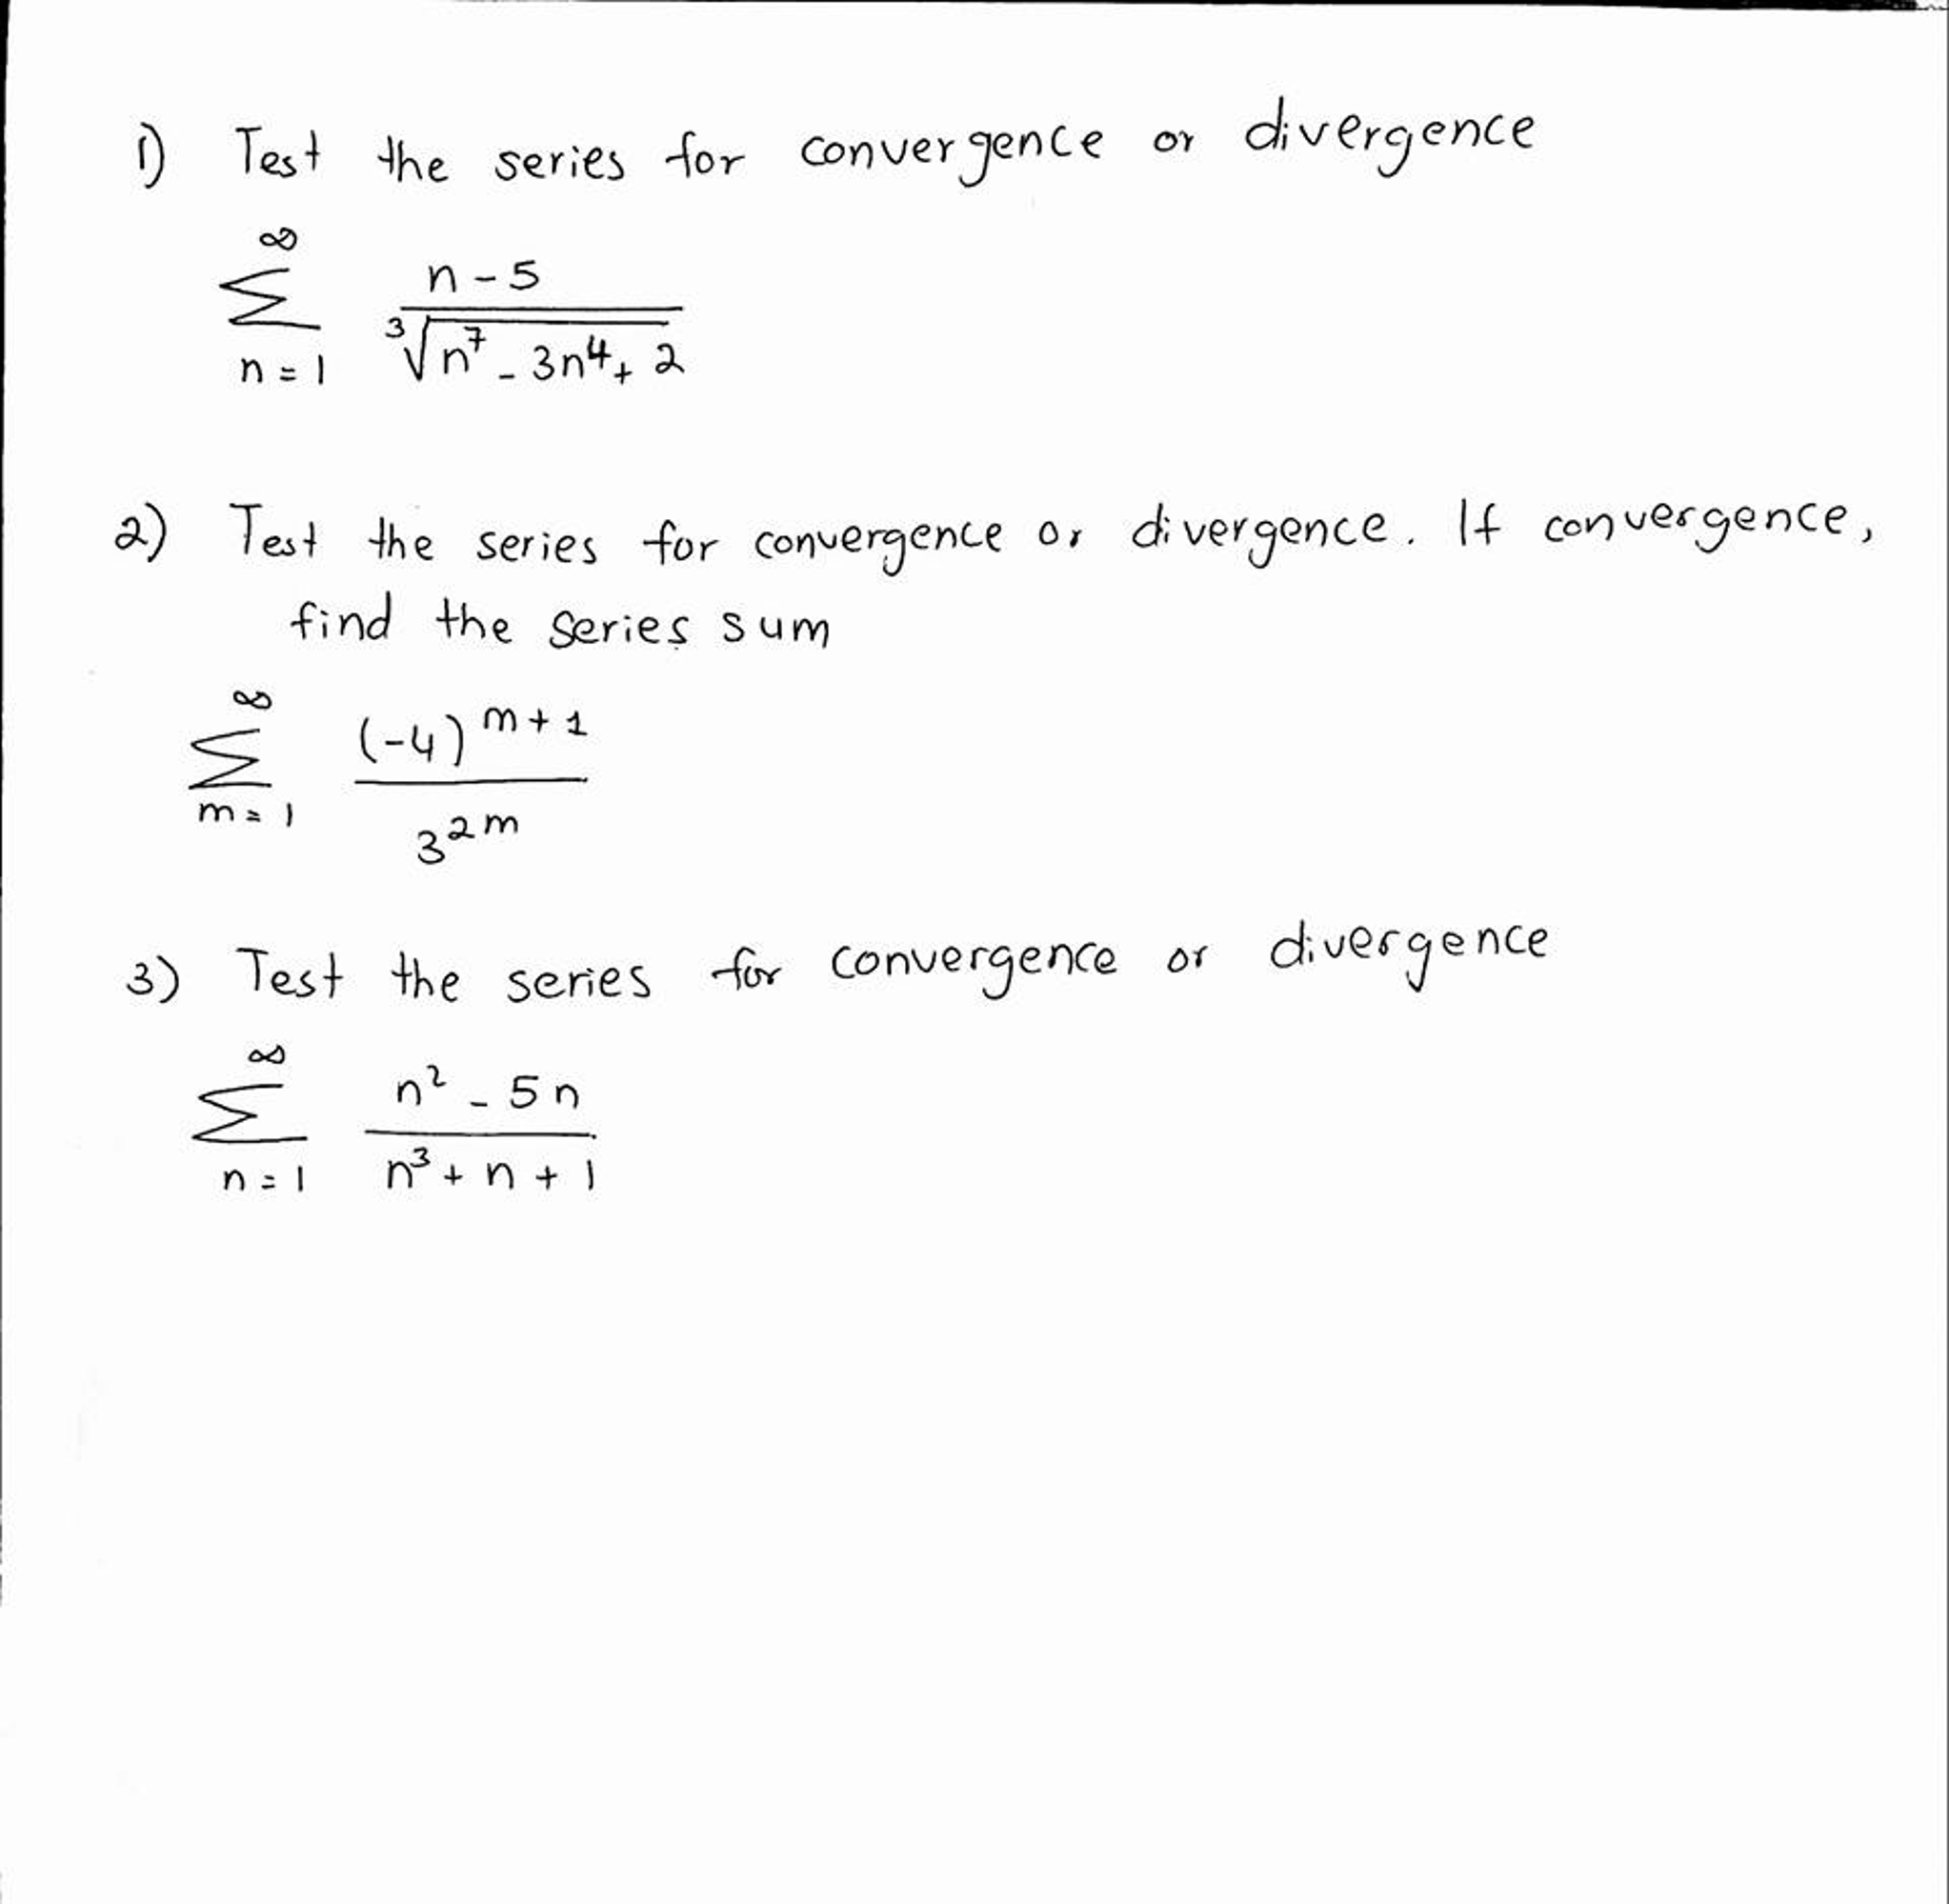 1) Test the series for convergence or divergence
∞
∑ n - 5
n = 1 3√n⁷ - 3n⁴ + 2
2) Test the series for convergence or divergence. If convergence,
find the series sum
∞
∑ (-4)^m+1
m = 1 3^2m
3) Test the series for convergence or divergence
∞
∑ n² - 5n
n = 1 n³ + n + 1